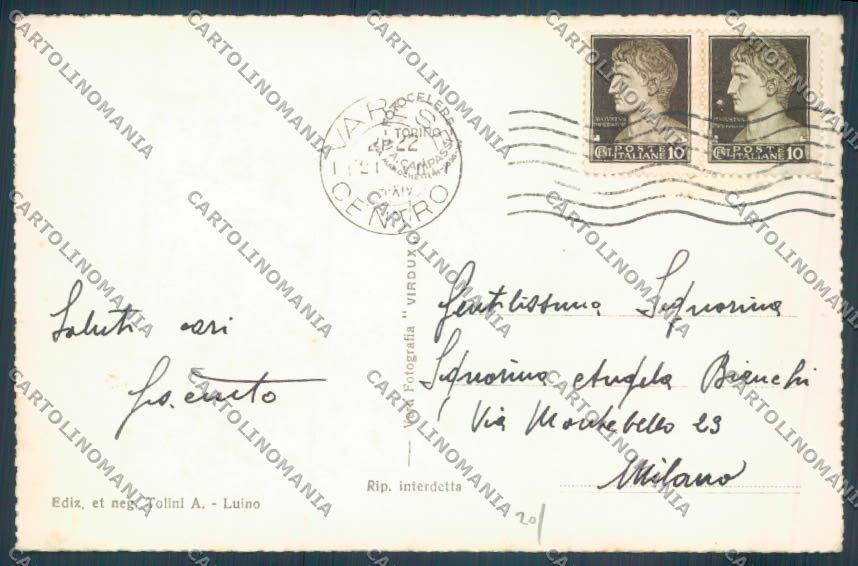 VARESE
CENTRO
TORINO
22
XIV
POSTE ITALIANE
CENT. 10
POSTE ITALIANE
CENT. 10
Saluti cari
Gentilissima Signorina
Signorina Angela Bianchi
Via Montebello 23
Milano
Vera Fotografia "VIRDUX"
Rip. interdetta
Ediz. et neg. Tolini A. - Luino
20/
CARTOLINOMANIA